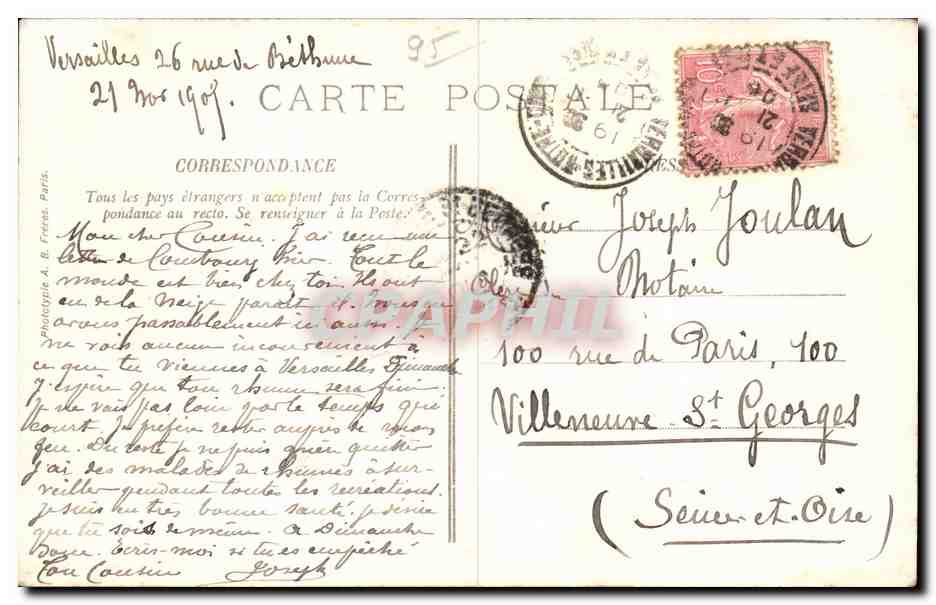 Versailles 26 rue de Béthune
21 Nov 1905.
95
CARTE POSTALE
CORRESPONDANCE
Tous les pays étrangers n'acceptent pas la Corres-
pondance au recto. Se renseigner à la Poste.
Phototypie A. B. Frères, Paris.
Mon cher Cousin. J'ai reçu une
lettre de Combourg hier. Tout le
monde est bien chez toi. Ils ont
eu de la neige parait-il. Nous en
avons passablement ici aussi. Je
ne vois aucun inconvénient à
ce que tu viennes à Versailles Dimanche
J'espère que ton rhume sera fini.
Je ne vais pas loin par le temps qui
court. Je préfère rester auprès de mon
feu. Du reste je ne puis guère quitter
j'ai des malades de rhumes à sur-
veiller pendant toutes les récréations.
Je suis en très bonne santé. je désire
que tu sois de même. A Dimanche
donc. Ecris-moi si tu es empêché
Ton Cousin Joseph
VERSAILLES
19
21
Joseph Joulan
Notaire
100 rue de Paris, 100
Villeneuve St Georges
(Seine-et-Oise)
CPARAMA